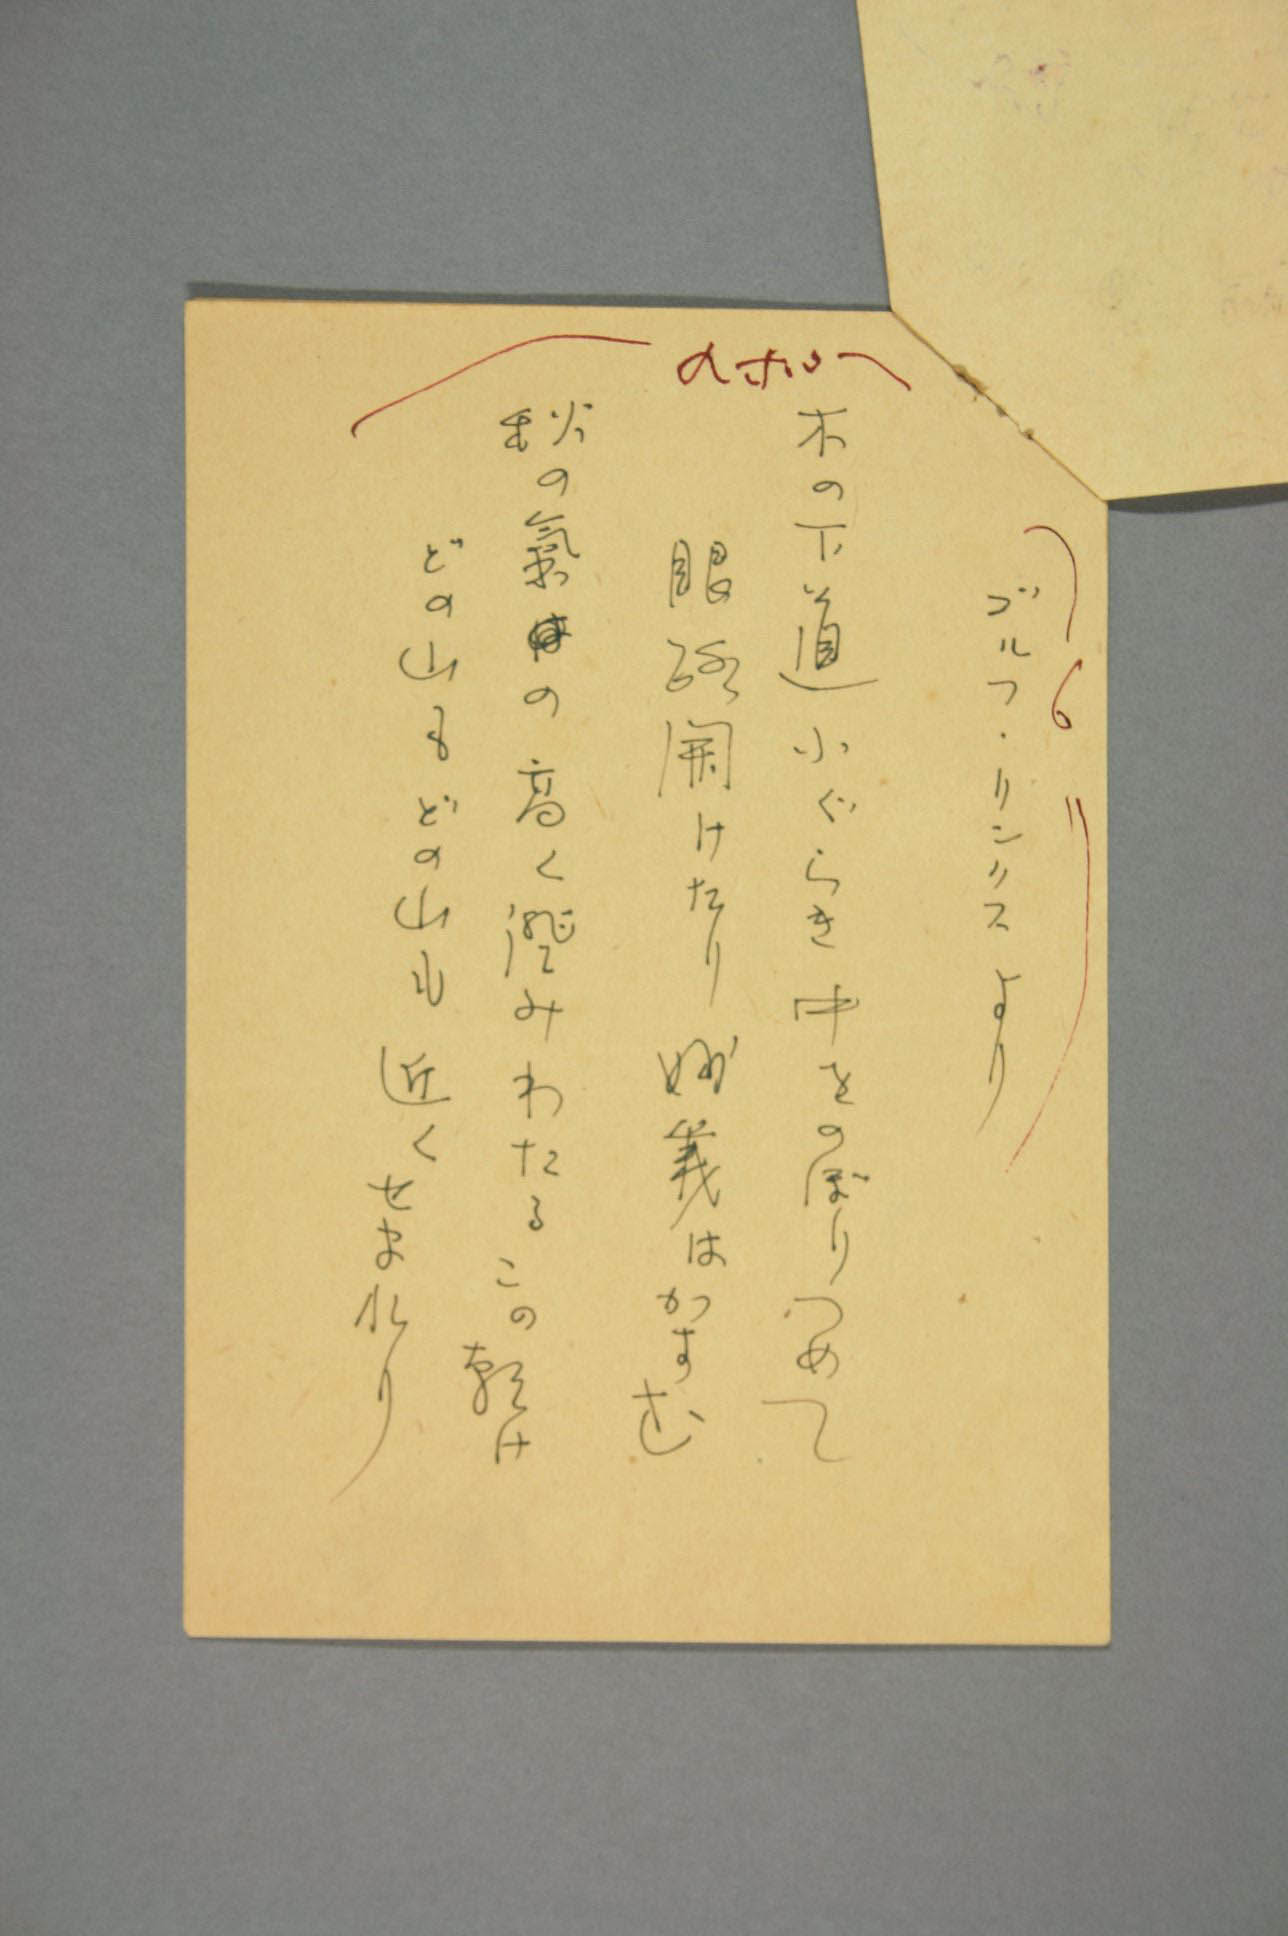 6〃
ゴルフ・リンクスより
木の下道小ぐらき中をのぼりつめて
眼路開けたり妙義はかすむ
秋の氣の高く澄みわたるこの朝け
どの山もどの山も近くせまれり